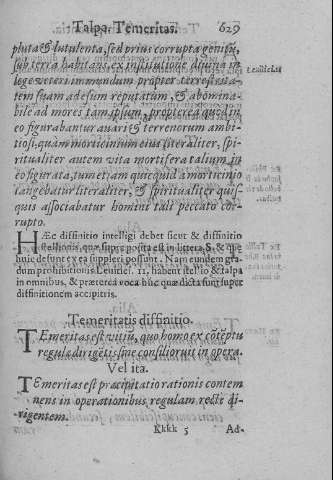 Talpa. Temeritas. 629
pluta & lutulenta, sed prius corrupta genisu,
sub terra habitans, ex institutione diuina in
lege veteri immundum propter terrestrita-
tem suam adesum reputatum, & abomina-
bile ad mores tam ipsum, propterea quòd in
eo figurabantur auari & terrenorum ambi-
tiosi, quàm morticinium eius literaliter, spi-
ritualiter autem vita mortifera talium in
eo figurata, tumetiam quicquid a morticinio
tangebatur literaliter, & spiritualiter quis-
quis associabatur homini tali peccato cor-
rupto.
HÆc diffinitio intelligi debet sicut & diffinitio
stellionis, quæ supra posita est in littera S. & quæ
huic desunt ex ea suppleri possunt. Nam eundem gra-
dum prohibitionis Leuitici. 11. habent stellio & talpa
in omnibus, & præterea voca huc quæ dicta sunt super
diffinitionem accipitris.
Temeritatis diffinitio.
TEmeritas est vitiũ, quo homo ex cõtẽptu
regulæ dirigẽtis sine consilio ruit in opera.
Vel ita.
TEmeritas est præcipitatio rationis contem
nens in operationibus regulam rectè di-
rigentem.
Kkkk 5 Ad-